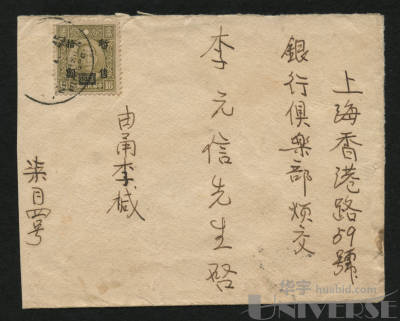 上海香港路59號
銀行俱樂部煩交
李元信先生啓
由甬李椷
柒月四号
暫售
華宇 huabid.com
UNIVERSE